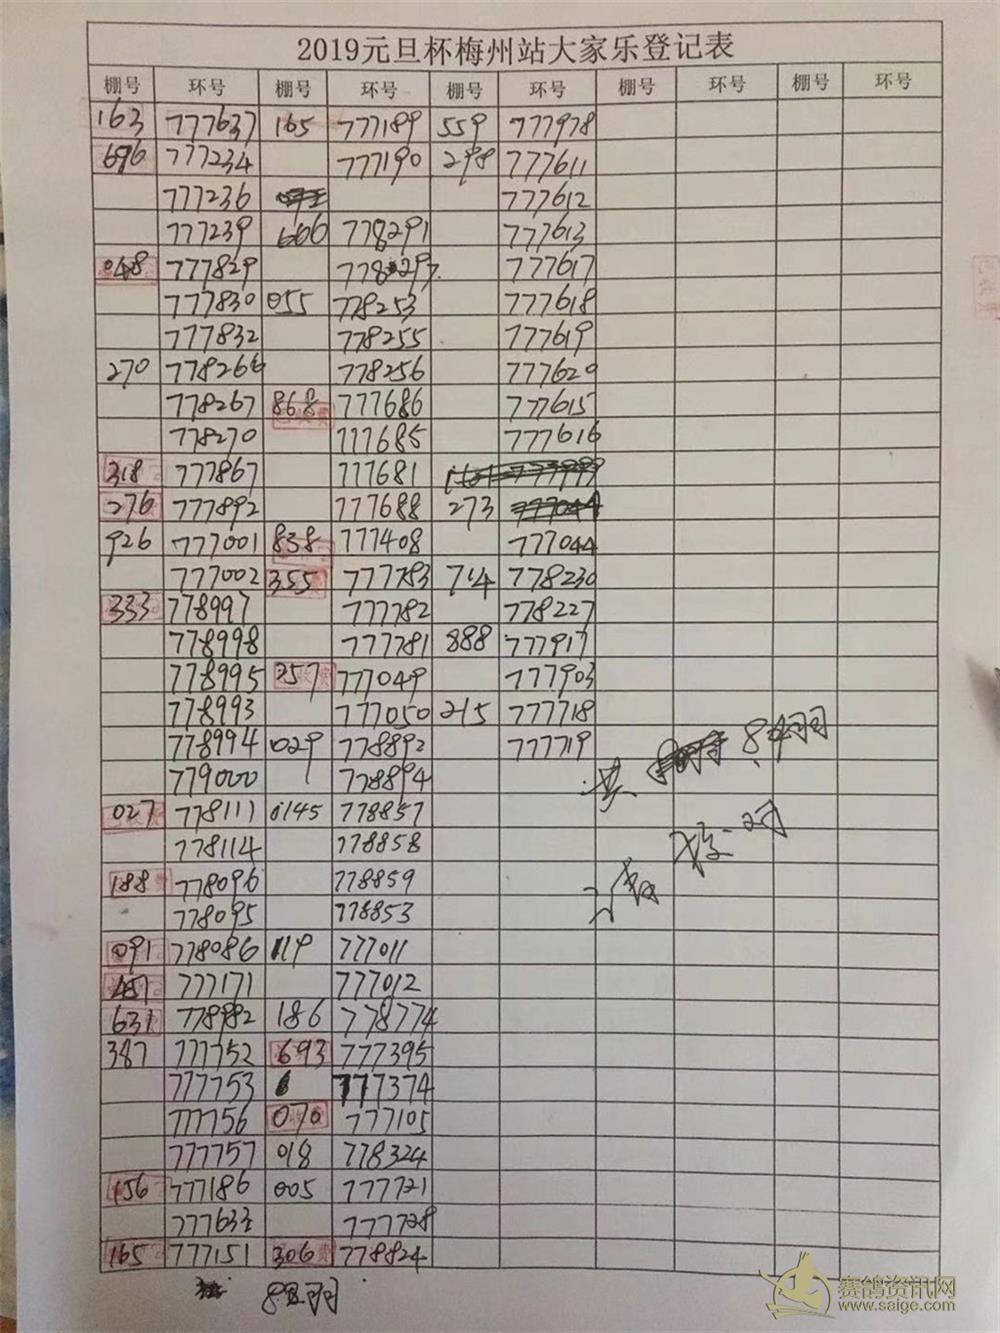 2019元旦杯梅州站大家乐登记表
棚号 环号 棚号 环号 棚号 环号 棚号 环号 棚号 环号
163 777637 165 777189 559 777978
696 777234 777190 298 777611
777236 777612
777239 666 778291 777613
048 777829 778297 777617
777830 055 778253 777618
777832 778255 777619
270 778266 778256 777620
778267 868 777686 777615
778270 777685 777616
318 777867 777681
276 777892 777688 273
926 777001 838 777408 777044
777002 355 777783 714 778230
333 778997 777782 778227
778998 777781 888 777917
778995 257 777049 777903
778993 777050 215 777718
778994 029 778892 777719
779000 778894
027 778111 0145 778857
778114 778858
188 778096 778859
778095 778853
091 778086 119 777011
451 777171 777012
631 778982 186 778774
387 777752 693 777395
777753 777374
777756 070 777105
777757 018 778324
156 777186 005 777721
777633 777728
165 777151 306 778824
共 84羽
赛鸽资讯网
www.saige.com